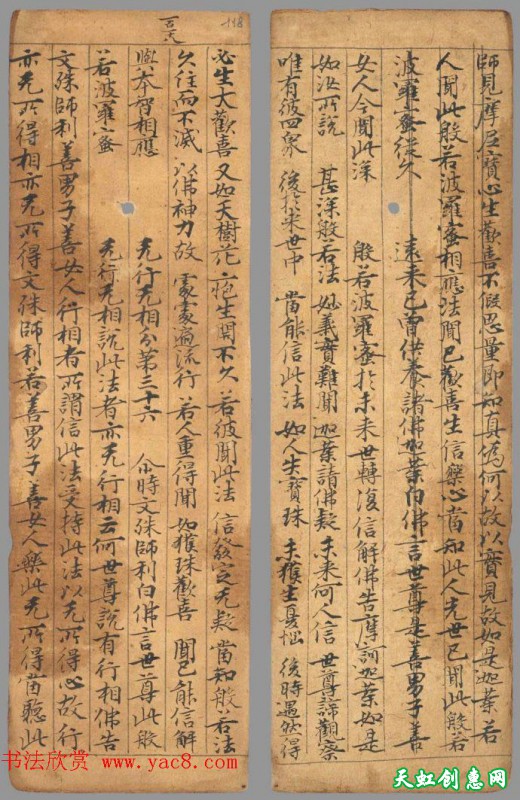 師見摩尼寶心生歡喜不假思量即知真偽何以故以寶見故如是迦葉若
人聞此般若波羅蜜相應法聞已歡喜生信樂心當知此人先世已聞此般若
波羅蜜從久遠來已曾供養諸佛迦葉白佛言世尊是善男子善
女人今聞此深般若波羅蜜於未來世轉復信解佛告摩訶迦葉如是
如汝所說 甚深般若法 妙義實難聞 迦葉請佛疑 未來何人信 世尊諦觀察
唯有彼四眾 後於末世中 當能信此法 如人失寶珠 未獲生憂惱 後時遇然得
118
言天
必生大歡喜又如天樹花 疱生開不久 若彼聞此法 信發定无疑 當知般若法
久住而不滅 以佛神力故 處處遍流行 若人重得聞 如獲珠歡喜 聞已能信解
與本智相應 无行无相分第三十六 尒時文殊師利白佛言世尊此般
若波羅蜜无行无相說此法者亦无行相云何世尊說有行相佛告
文殊師利善男子善女人行相者所謂信此法受持此法以无所得心故行
亦无所得相亦无所得文殊師利若善男子善女人樂此无所得當聽此
书法欣赏
www.yac8.com
天虹创意网